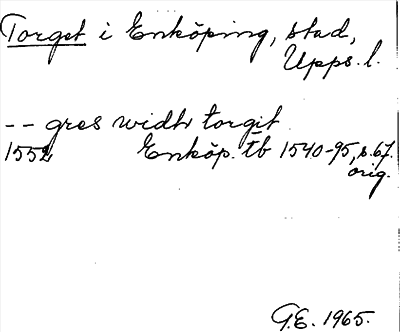 Torget i Enköping, stad,
Upps. l.
-- gres widh torgit
1552 Enköp. tb 1540-95, s. 67.
orig.
G.E. 1965.